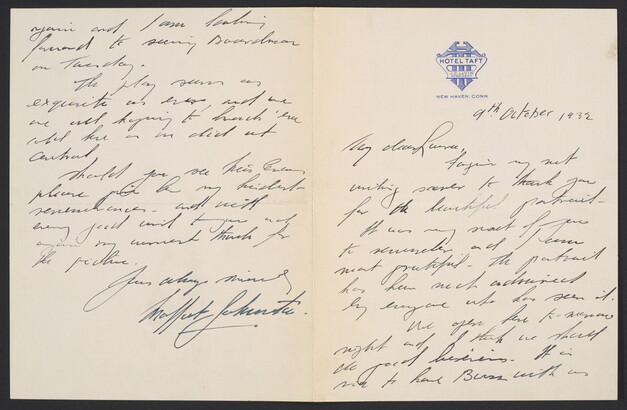 HOTEL TAFT
NEW HAVEN, CONN.
9th October 1932
My dear Laura,
Forgive my not
writing sooner to thank you
for the beautiful portrait.
It was very sweet of you
to remember and I am
most grateful. The portrait
has been much admired
by everyone who has seen it.
We open here to-morrow
night and I think we should
do good business. It is
nice to have with us
again and I am looking
forward to seeing Boardman
on Tuesday.
The play seems as
exquisite as ever and we
are all hoping to
as we did at
Central
Should you see Miss Evans
please give her my kindest
remembrances. And with
every good wish to you and
again my warmest thanks for
the picture.
Yours always sincerely
Moffat Johnston.